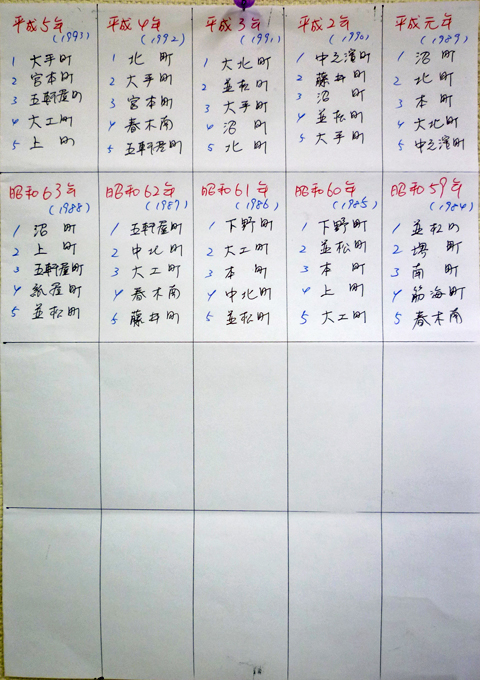 平成5年
(1993)
1 大手町
2 宮本町
3 五軒屋町
4 大工町
5 上 町
平成4年
(1992)
1 北 町
2 大手町
3 宮本町
4 春木南
5 五軒屋町
平成3年
(1991)
1 大北町
2 並松町
3 大手町
4 沼 町
5 北 町
平成2年
(1990)
1 中之濱町
2 藤井町
3 沼 町
4 並松町
5 大手町
平成元年
(1989)
1 沼 町
2 北 町
3 本 町
4 大北町
5 中之濱町
昭和63年
(1988)
1 沼 町
2 上 町
3 五軒屋町
4 紙屋町
5 並松町
昭和62年
(1987)
1 五軒屋町
2 中北町
3 大工町
4 春木南
5 藤井町
昭和61年
(1986)
1 下野町
2 大工町
3 本 町
4 中北町
5 並松町
昭和60年
(1985)
1 下野町
2 並松町
3 本 町
4 上 町
5 大工町
昭和59年
(1984)
1 並松町
2 堺 町
3 南 町
4 筋海町
5 春木南